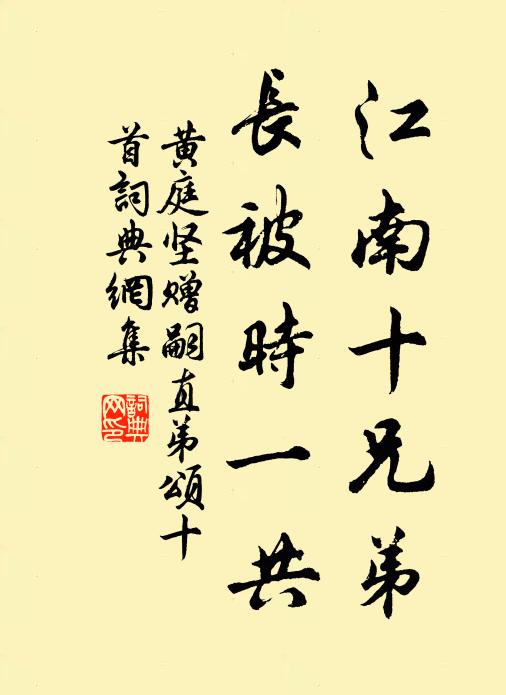 江南十兄弟
長被時一共
黄庭坚赠嗣直弟頌十
首詞典網集
詞典
网印